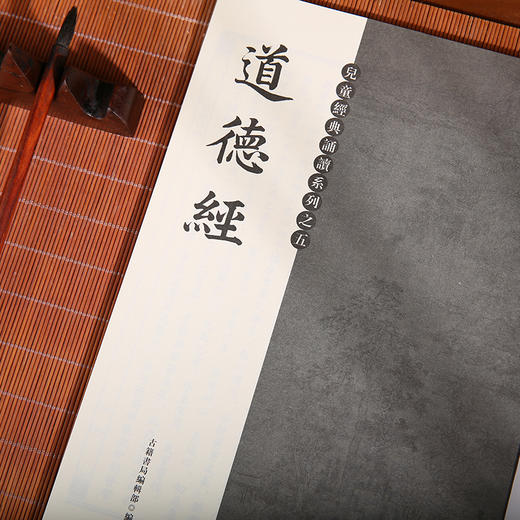 道德經
兒童經典誦讀系列之五
古籍書局編輯部◎編